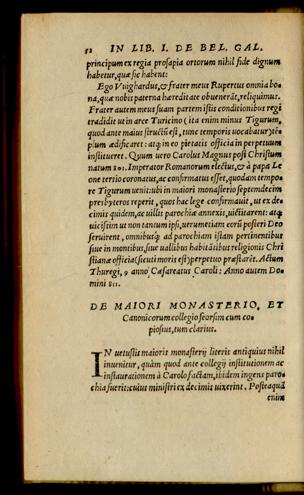 52 IN LIB. I. DE BEL. GAL.
principum ex regia prosapia ortorum nihil fide dignum
habetur, quæ sic habent:
Ego Vuighardus, & frater meus Rupertus omnia bo-
na, quæ nobis paterna hæreditate obuenerãt, reliquimus.
Frater autem meus suam partem istis conditionibus regi
tradidit ut in arce Turicino (ita enim minus Tigurum,
quod ante maius structũ est, tunc temporis uocabatur) tẽ-
plum ædificaret: atq; in eo pietatis officia in perpetuum
institueret. Quum uero Carolus Magnus post Christum
natum 801. Imperator Romanorum electus, & à papa Le
one tertio coronatus, ac confirmatus esset, quodam tempo-
re Tigurum uenit: ubi in maiori monasterio septemdecim
presbyteros reperit, quos hac lege confirmauit, ut ex de-
cimis quidem, ac uillis parochiæ annexis, uictitarent: atq;
uicissim ut non tantum ipsi, uerumetiam eorũ posteri Deo
seruirent, omnibusq; ad parochiam istam pertinentibus
siue in montibus, siue uallibus habitãtibus religionis Chri
stianæ officia (sicuti moris est) perpetuo præstarẽt. Actum
Thuregi, 9 anno Cæsareatus Caroli: Anno autem Do-
mini 811.
DE MAIORI MONASTERIO, ET
Canonicorum collegio seorsim cum co-
piosius, tum clarius.
IN uetustis maioris monasterij literis antiquius nihil
inuenitur, quàm quod ante collegij institutionem ac
instaurationem à Carolo factam, ibidem ingens paro-
chia fuerit: cuius ministri ex decimis uixerint. Postea quã
enim